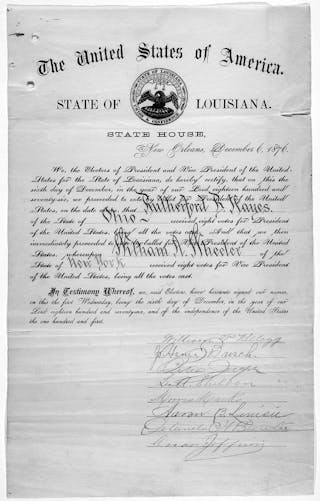 The United States of America.
STATE OF LOUISIANA.
STATE HOUSE,
New Orleans, December 6, 1876.
We, the Electors of President and Vice President of the United
States for the State of Louisiana, do hereby certify, that on this the
sixth day of December, in the year of our Lord eighteen hundred and
seventy-six, we proceeded to vote by ballot for President of the United
States, on the date above; that Rutherford B. Hayes
of the State of Ohio received eight votes for President
of the United States, being all the votes cast. And that we then
immediately proceeded to ballot for Vice President of the United
States, whereupon William A. Wheeler of the
State of New York received eight votes for Vice President
of the United States, being all the votes cast.
In Testimony Whereof, we, said Electors, have hereunto signed our names,
on this the first Wednesday, being the sixth day of December, in the year of our
Lord eighteen hundred and seventy-six, and of the independence of the United States
the one hundred and first.
Wm P. Kellogg
Peter Joseph
Morris Marks
Oscar Joffrion